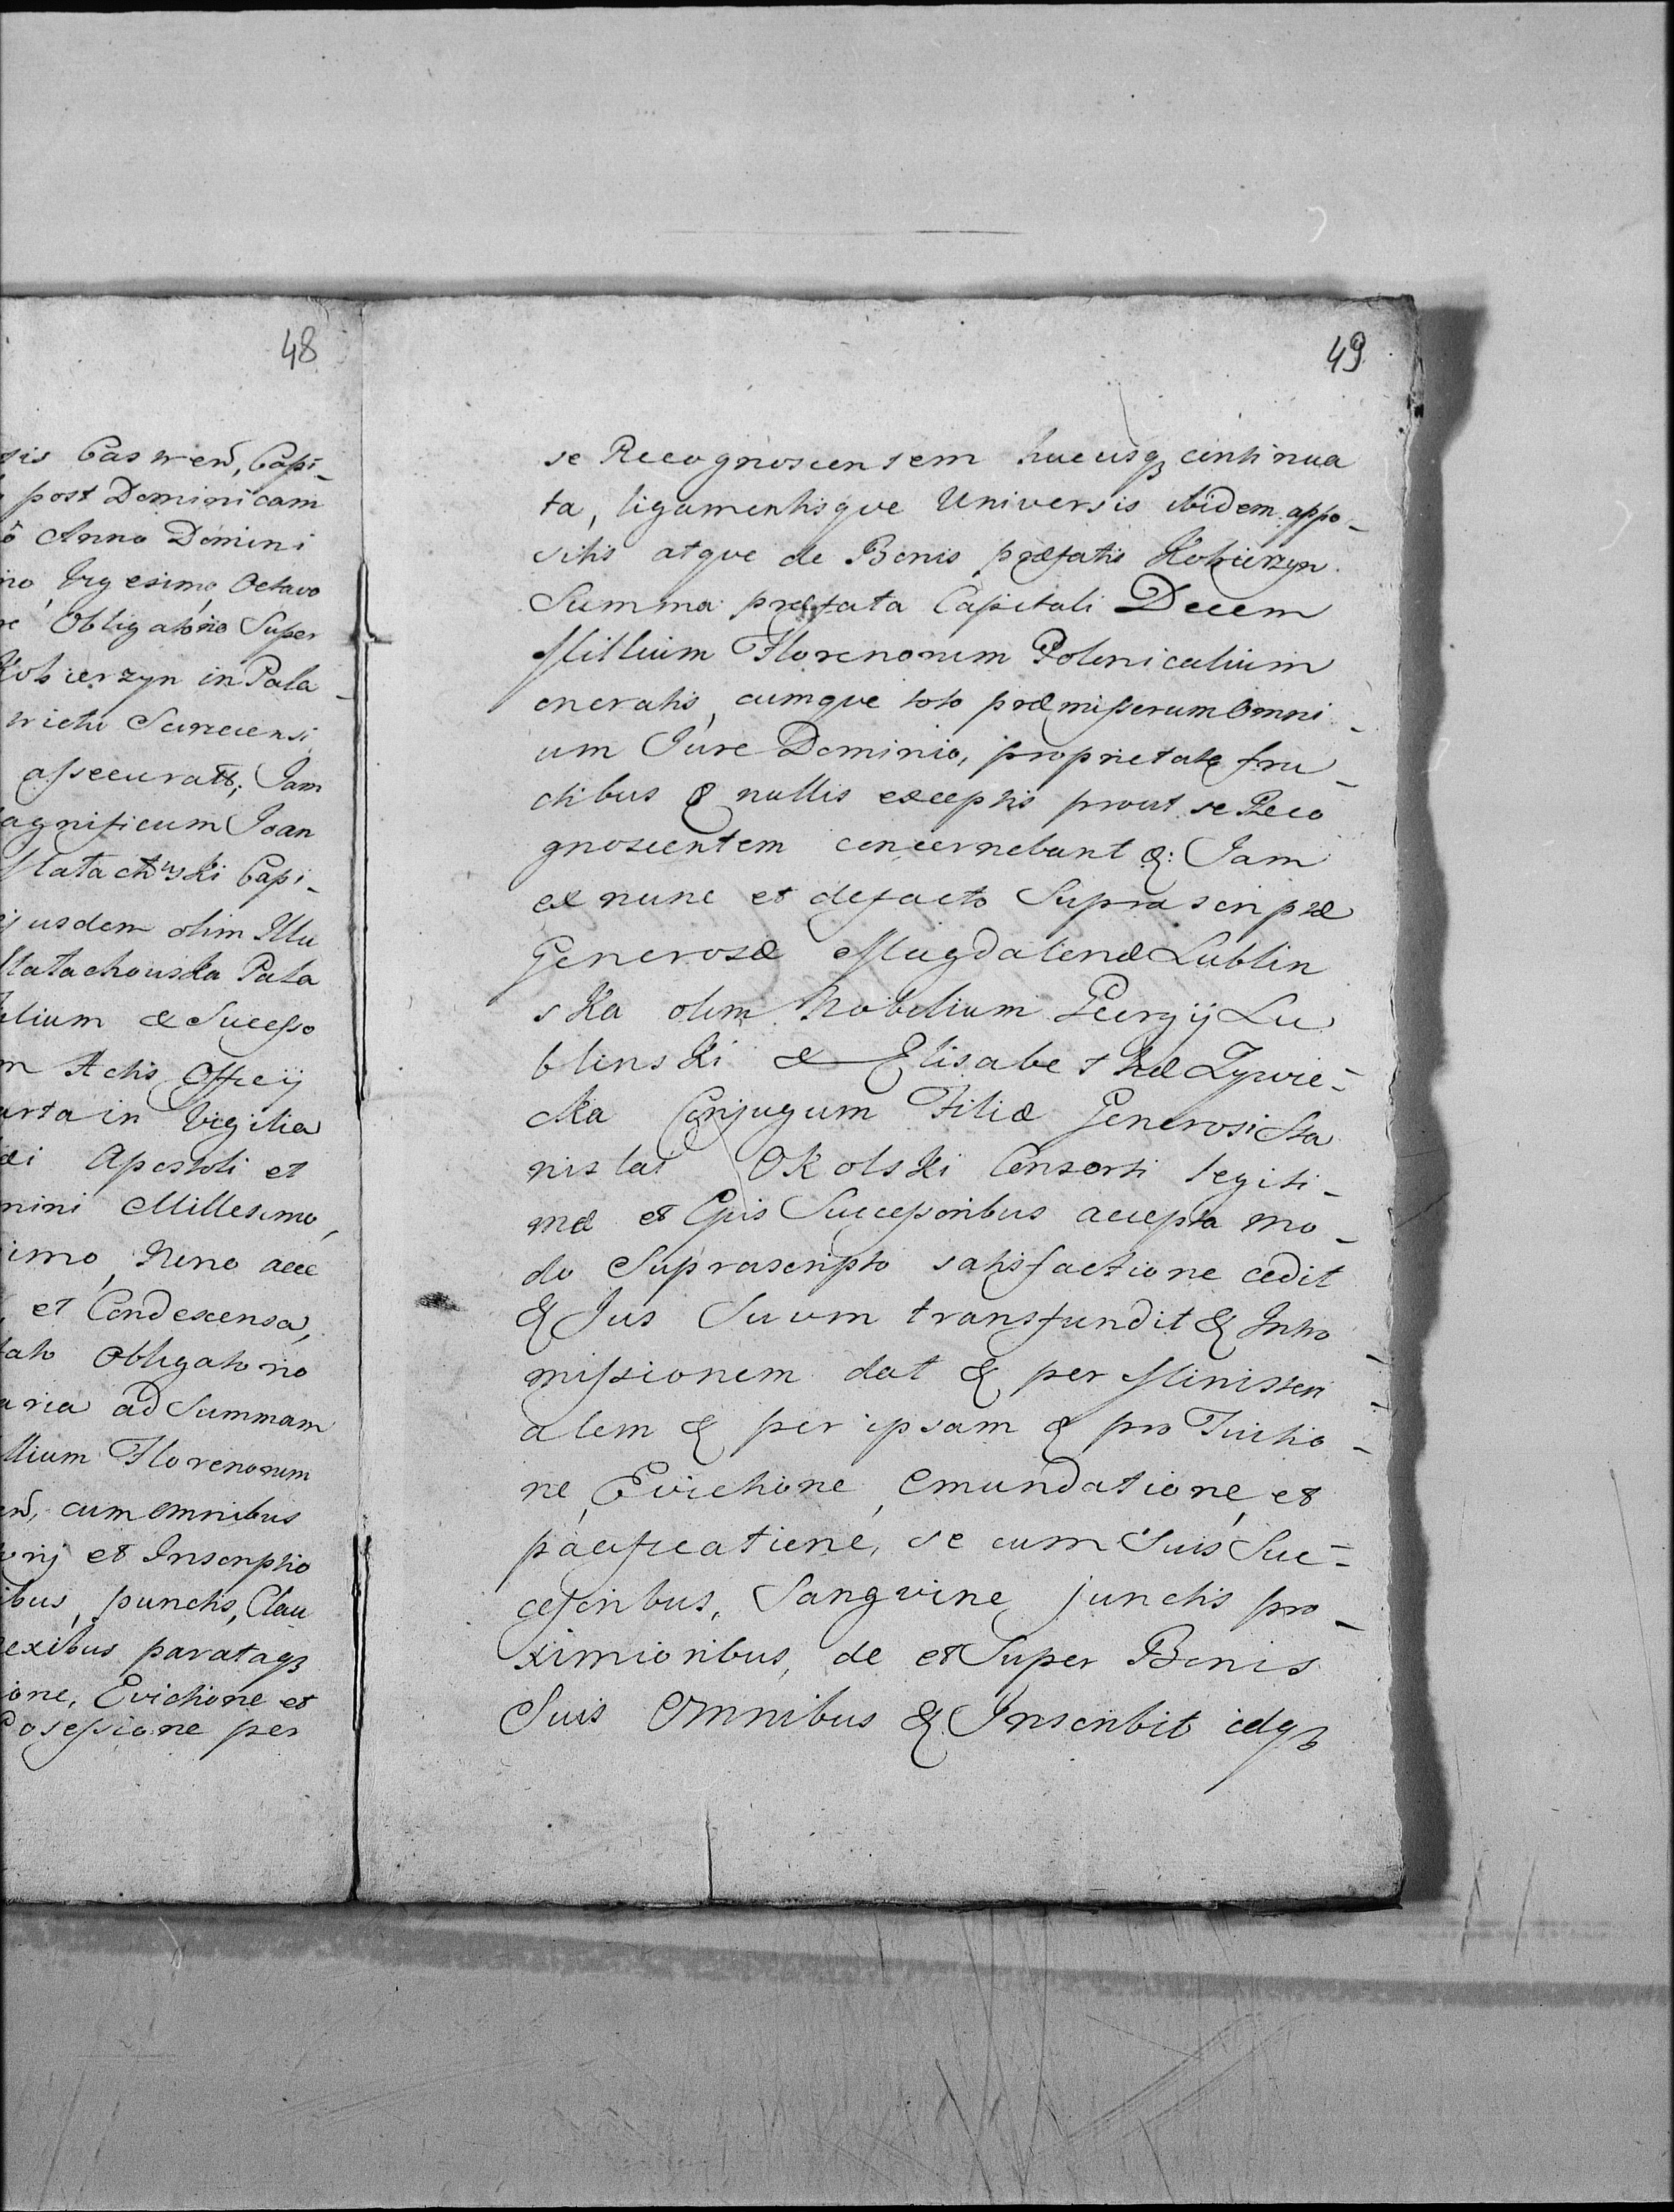 48
sis Castren, Capi-
post Dominicam
ô Anno Domini
no, Vigesimo Octavo
re Obligatorio Super
Kobierzyn in Pala-
trictu Scireciensi
assecuratt; Jam
agnificum Joan
Małachowski Capi-
ejusdem olim Illu
Małachowska Pala
ilium & Successo
m Actis Officÿ
arta in Vigilia
æi Apostoli et
mini Millesimo,
imo, Nono acce
, et Condescensa,
tato Obligatorio
aria ad Summam
llium Florenorum
en, cum omnibus
orij et Inscriptio
ibus, punctis, Clau
nexibus parataqȝ
ione, Evictione et
Posessione per
49
se Recognoscentem hucusqȝ continua
ta, ligamentisque Universis ibidem appo-
sitis atque de Bonis præfatis Kobierzyn
Summa præfata Capitali Decem
Millium Florenorum Polonicalium
oneratis, cumque toto præmissorum Omni-
um Jure Dominio, proprietate fru-
ctibus & nullis exceptis prout se Reco
gnoscentem concernebant &: Jam
ex nunc et defacto Suprascriptæ
Generosæ Magdalenæ Lublin
ska olim Nobilium Georgÿ Lu
blinski & Elisabethæ Zywie-
cka Conjugum Filiæ Generosi Sta
nislai Okolski Consorti legiti-
mæ et Ejus Successoribus accepta mo-
do Suprascripto satisfactione cedit
& Jus Suum transfundit & Intro
missionem dat & per Ministeri
alem & per ipsam & pro Tuitio-
ne, Evictione, Emundatione, et
pacificatione, se cum Suis Suc-
cessoribus, Sangvine junctis pro-
ximioribus, de et Super Bonis
Suis Omnibus & Inscribit idqȝ